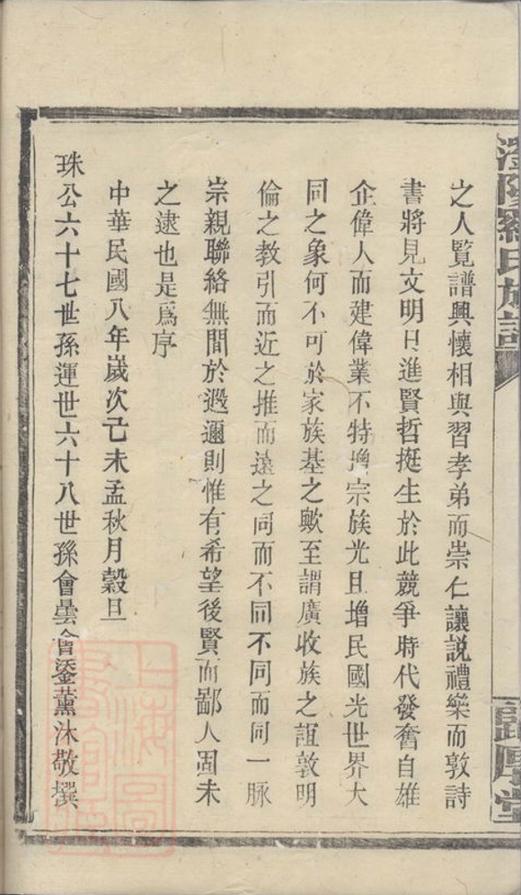 之人覧譜興懷相與習孝弟而崇仁讓説禮樂而敦詩
書將見文明日進賢哲挺生於此競爭時代發奮自雄
企偉人而建偉業不特增宗族光且增民國光世界大
同之象何不可於家族基之歟至謂廣收族之誼敦明
倫之教引而近之推而遠之同而不同不同而同一脉
宗親聯絡無間於遐邇則惟有希望後賢而鄙人固未
之逮也是爲序
中華民國八年嵗次己未孟秋月穀旦
珠公六十七世孫運世六十八世孫會曇會鋈薰沐敬撰
羅氏族譜
厚堂
上海圖